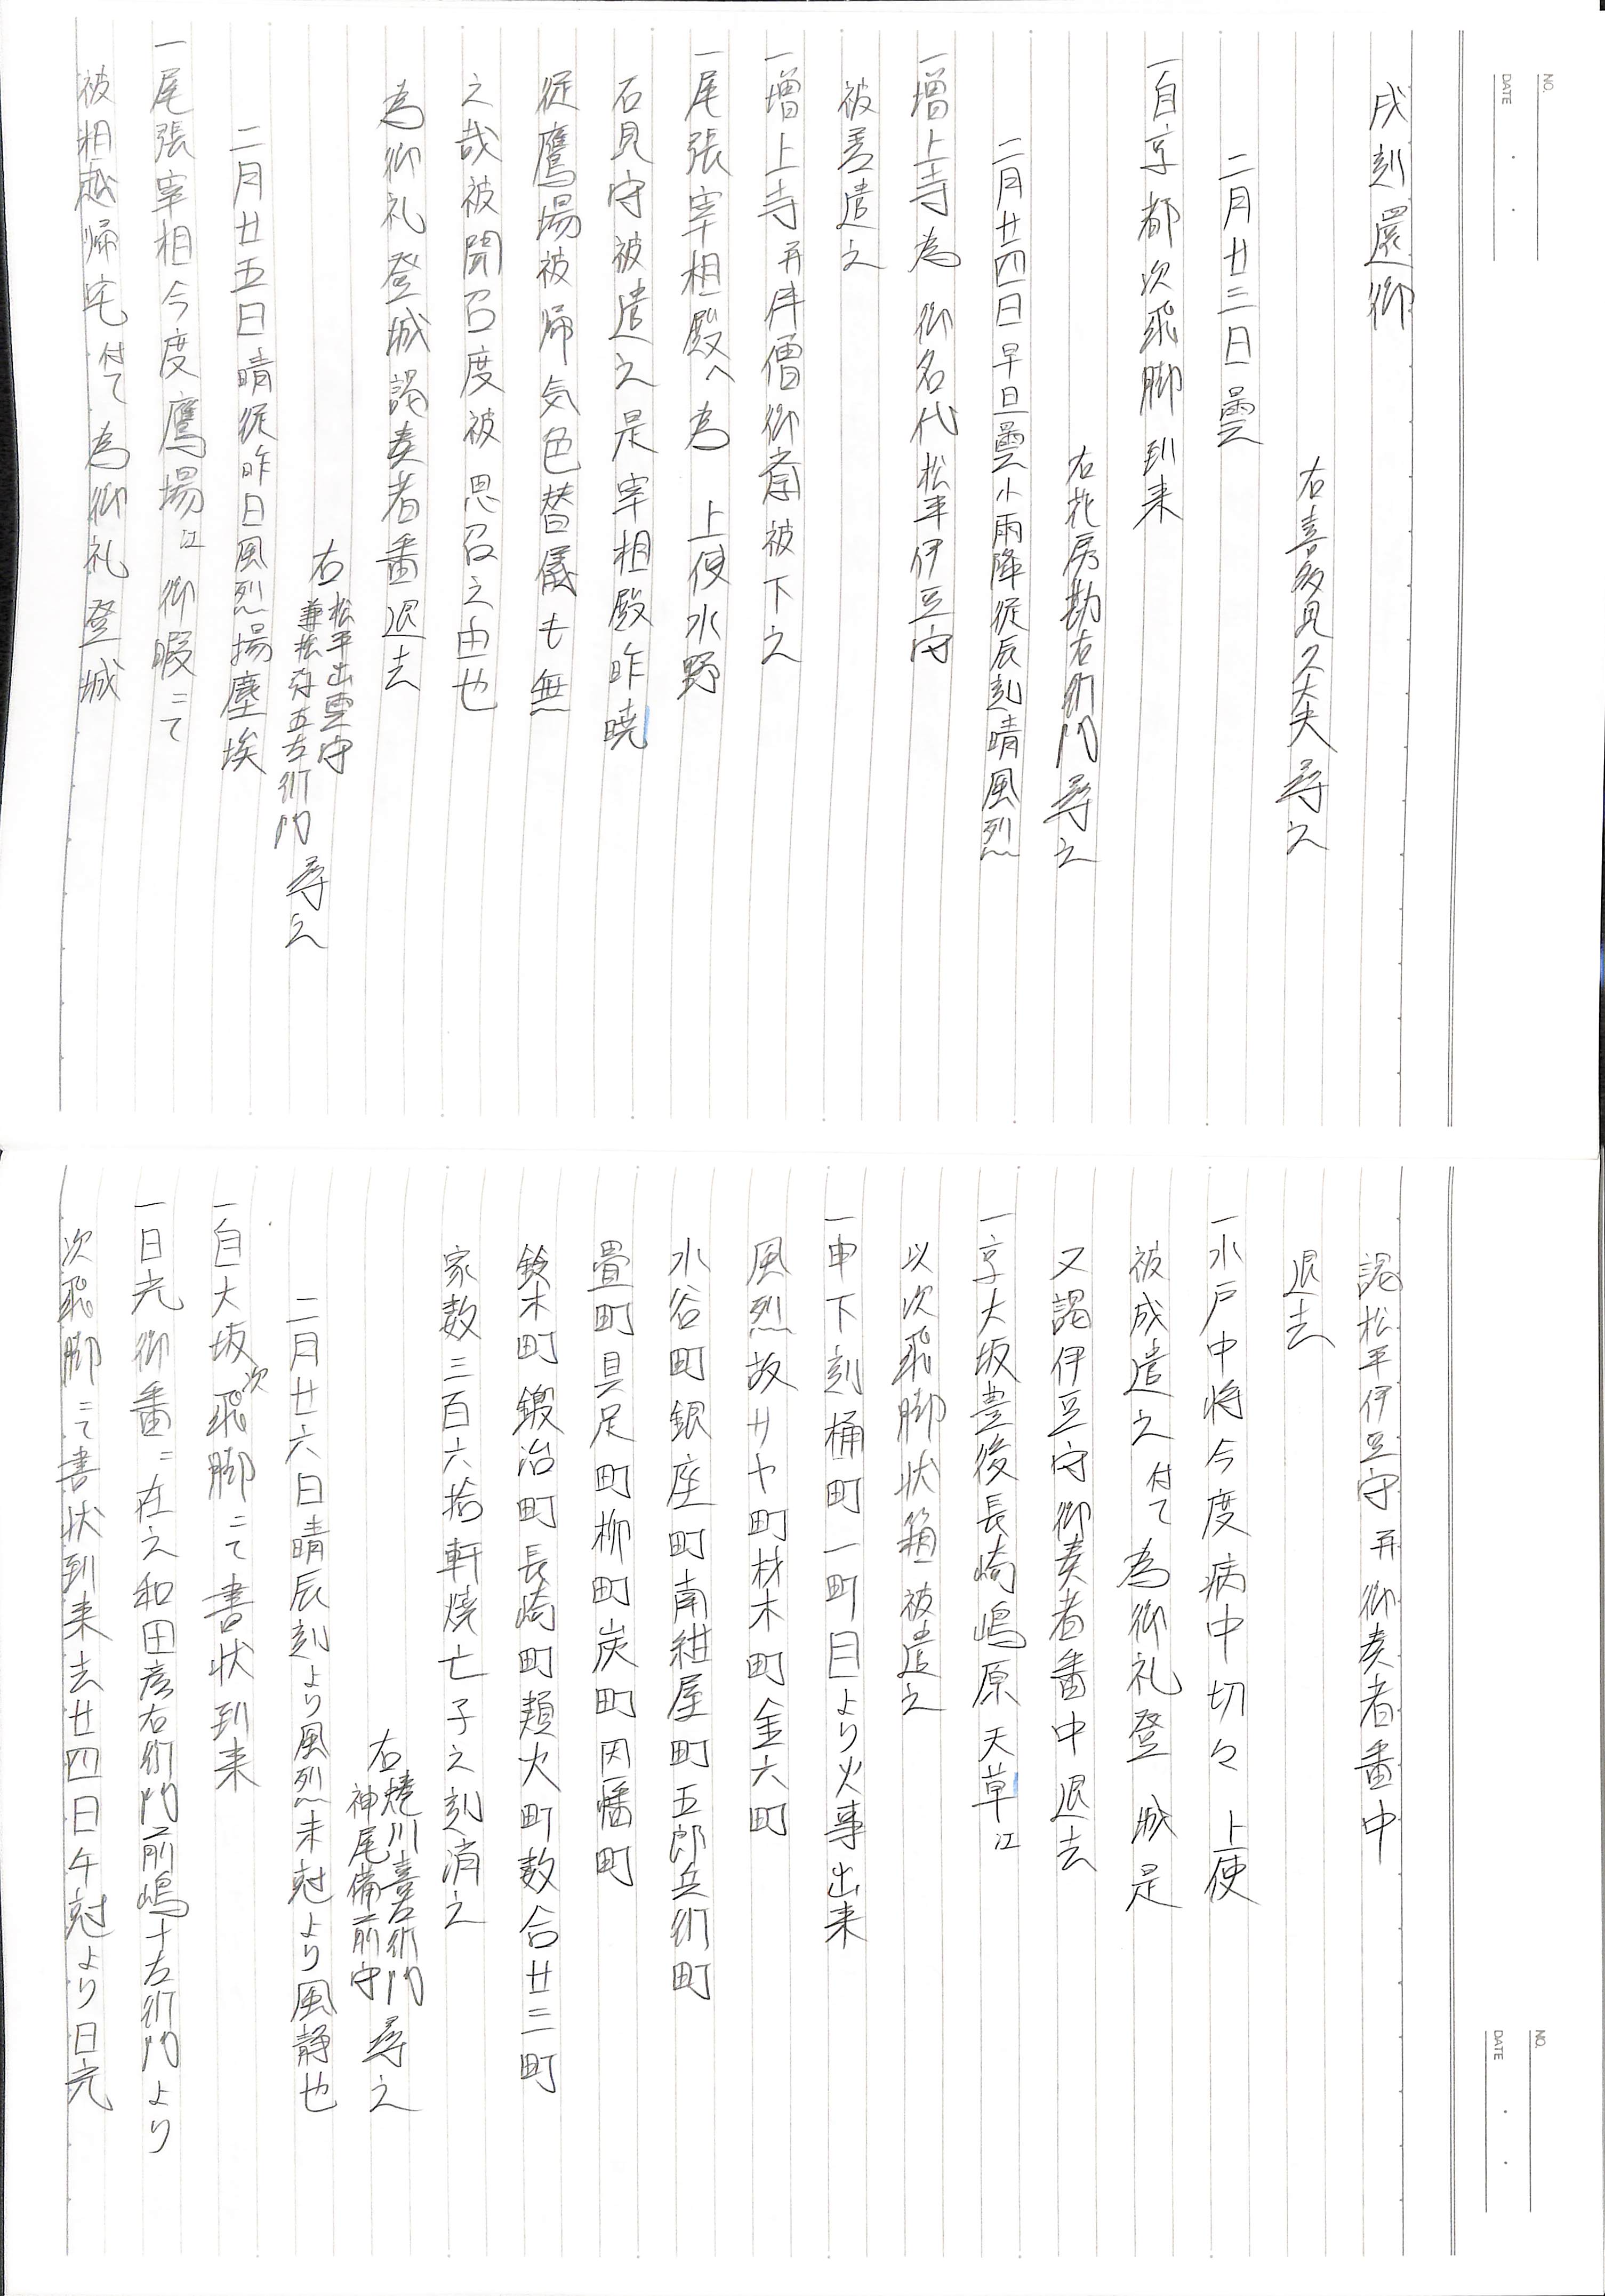 NO.
DATE
戌刻還御
右喜多見久大夫尋之
二月廿三日曇
一自京都次飛脚到来
右花房勘右衛門尋之
二月廿四日早旦曇小雨降従辰刻晴風烈
一増上寺為御名代松平伊豆守
被差遣之
一増上寺并伴僧御斎被下之
一尾張宰相殿へ為 上使水野
石見守被遣之是宰相殿昨暁
従鷹場被帰気色替儀も無
之哉被聞召度被思召之由也
為御礼登城謁奏者番退去
右松平出雲守
兼松弥五左衛門 尋之
二月廿五日晴従昨日風烈揚塵埃
一尾張宰相今度鷹場江御暇ニて
被相越帰宅付て為御礼登城
NO.
DATE
謁松平伊豆守并御奏者番中
退去
一水戸中将今度病中切々上使
被成遣之付て為御礼登城是
又謁伊豆守御奏者番中退去
一京大坂豊後長崎嶋原天草江
以次飛脚状箱被遣之
一申下刻桶町一町目より火事出来
風烈故サヤ町材木町金六町
水谷町銀座町南紺屋町五郎兵衛町
畳町具足町柳町炭町因幡町
鈴木町鍛冶町長崎町類火町数合廿三町
家数三百六拾軒焼亡子之刻消之
右蜷川喜左衛門
神尾備前守 尋之
二月廿六日晴辰刻より風烈未尅より風静也
一自大坂次飛脚ニて書状到来
一日光御番ニ在之和田彦右衛門前嶋十左衛門より
次飛脚ニて書状到来去廿四日午尅より日光